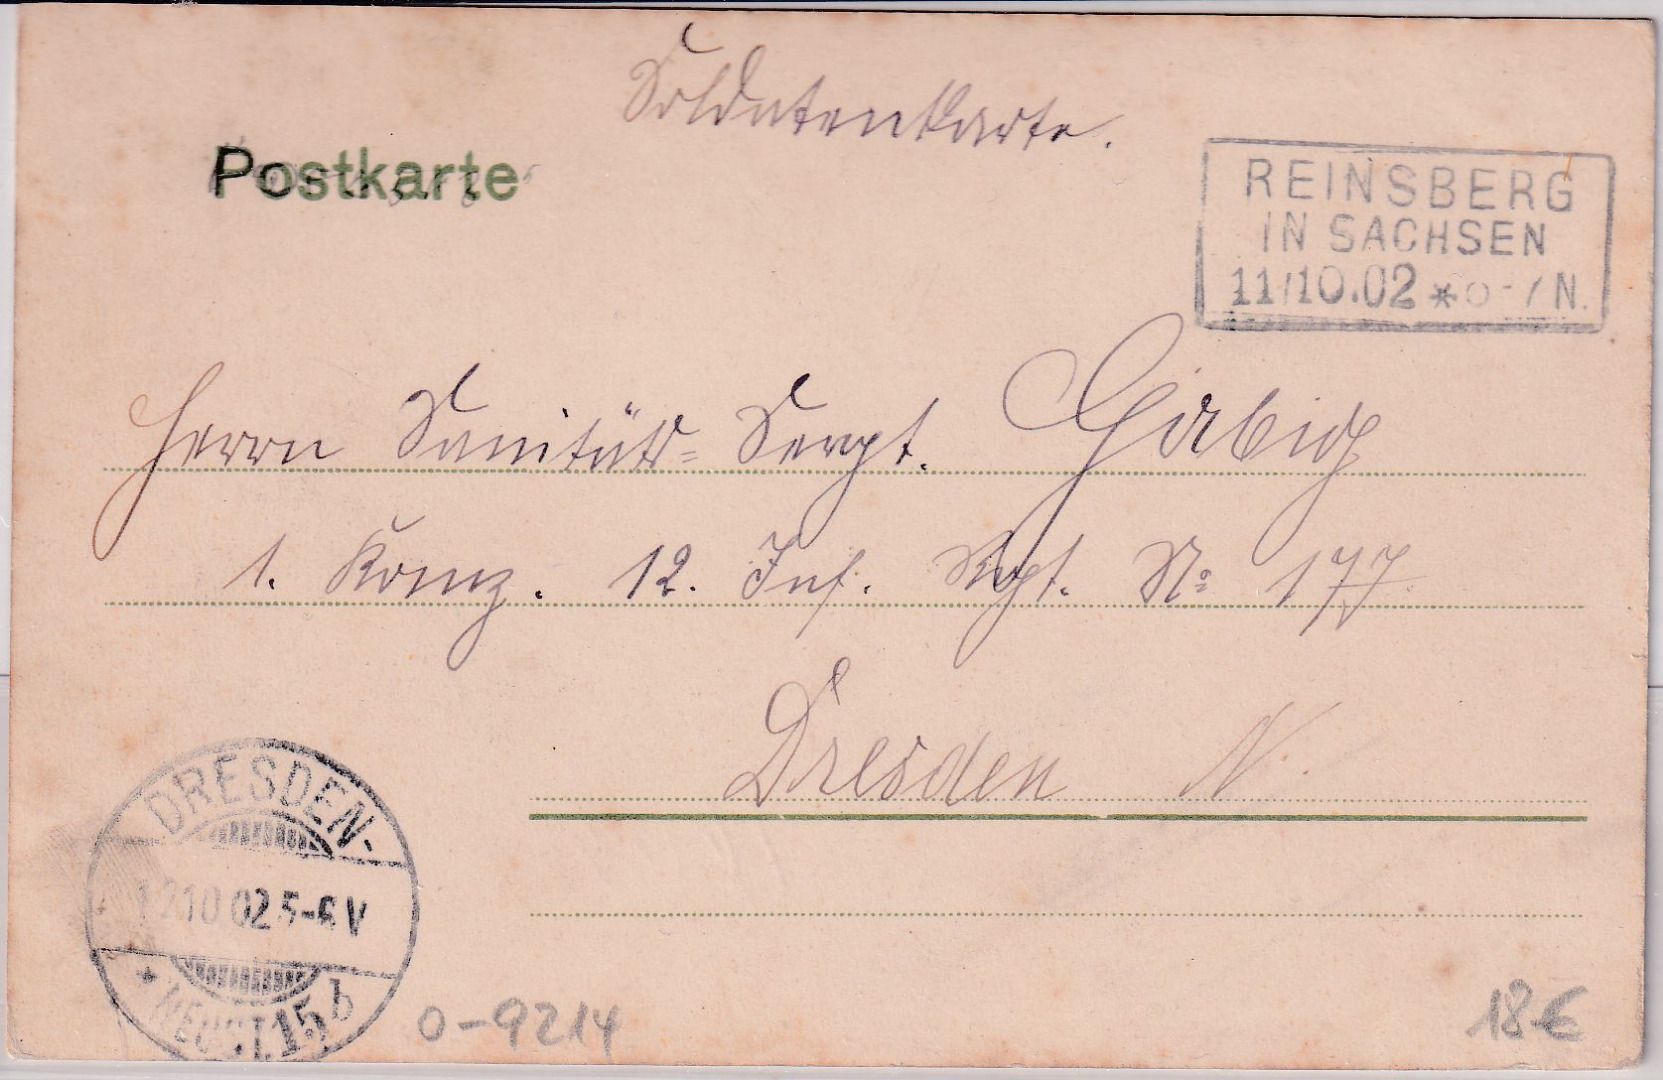 Soldatenkarte.
Postkarte
REINSBERG
IN SACHSEN
11/10.02 * 6-7 N.
Herrn Sanitäts= Sergt. Girbig
1. Komp. 12. Inf. Rgt. No 177
Dresden N.
DRESDEN-
12 10 02 5-6 V
* NEUST. 15 b
0-9214
18 €